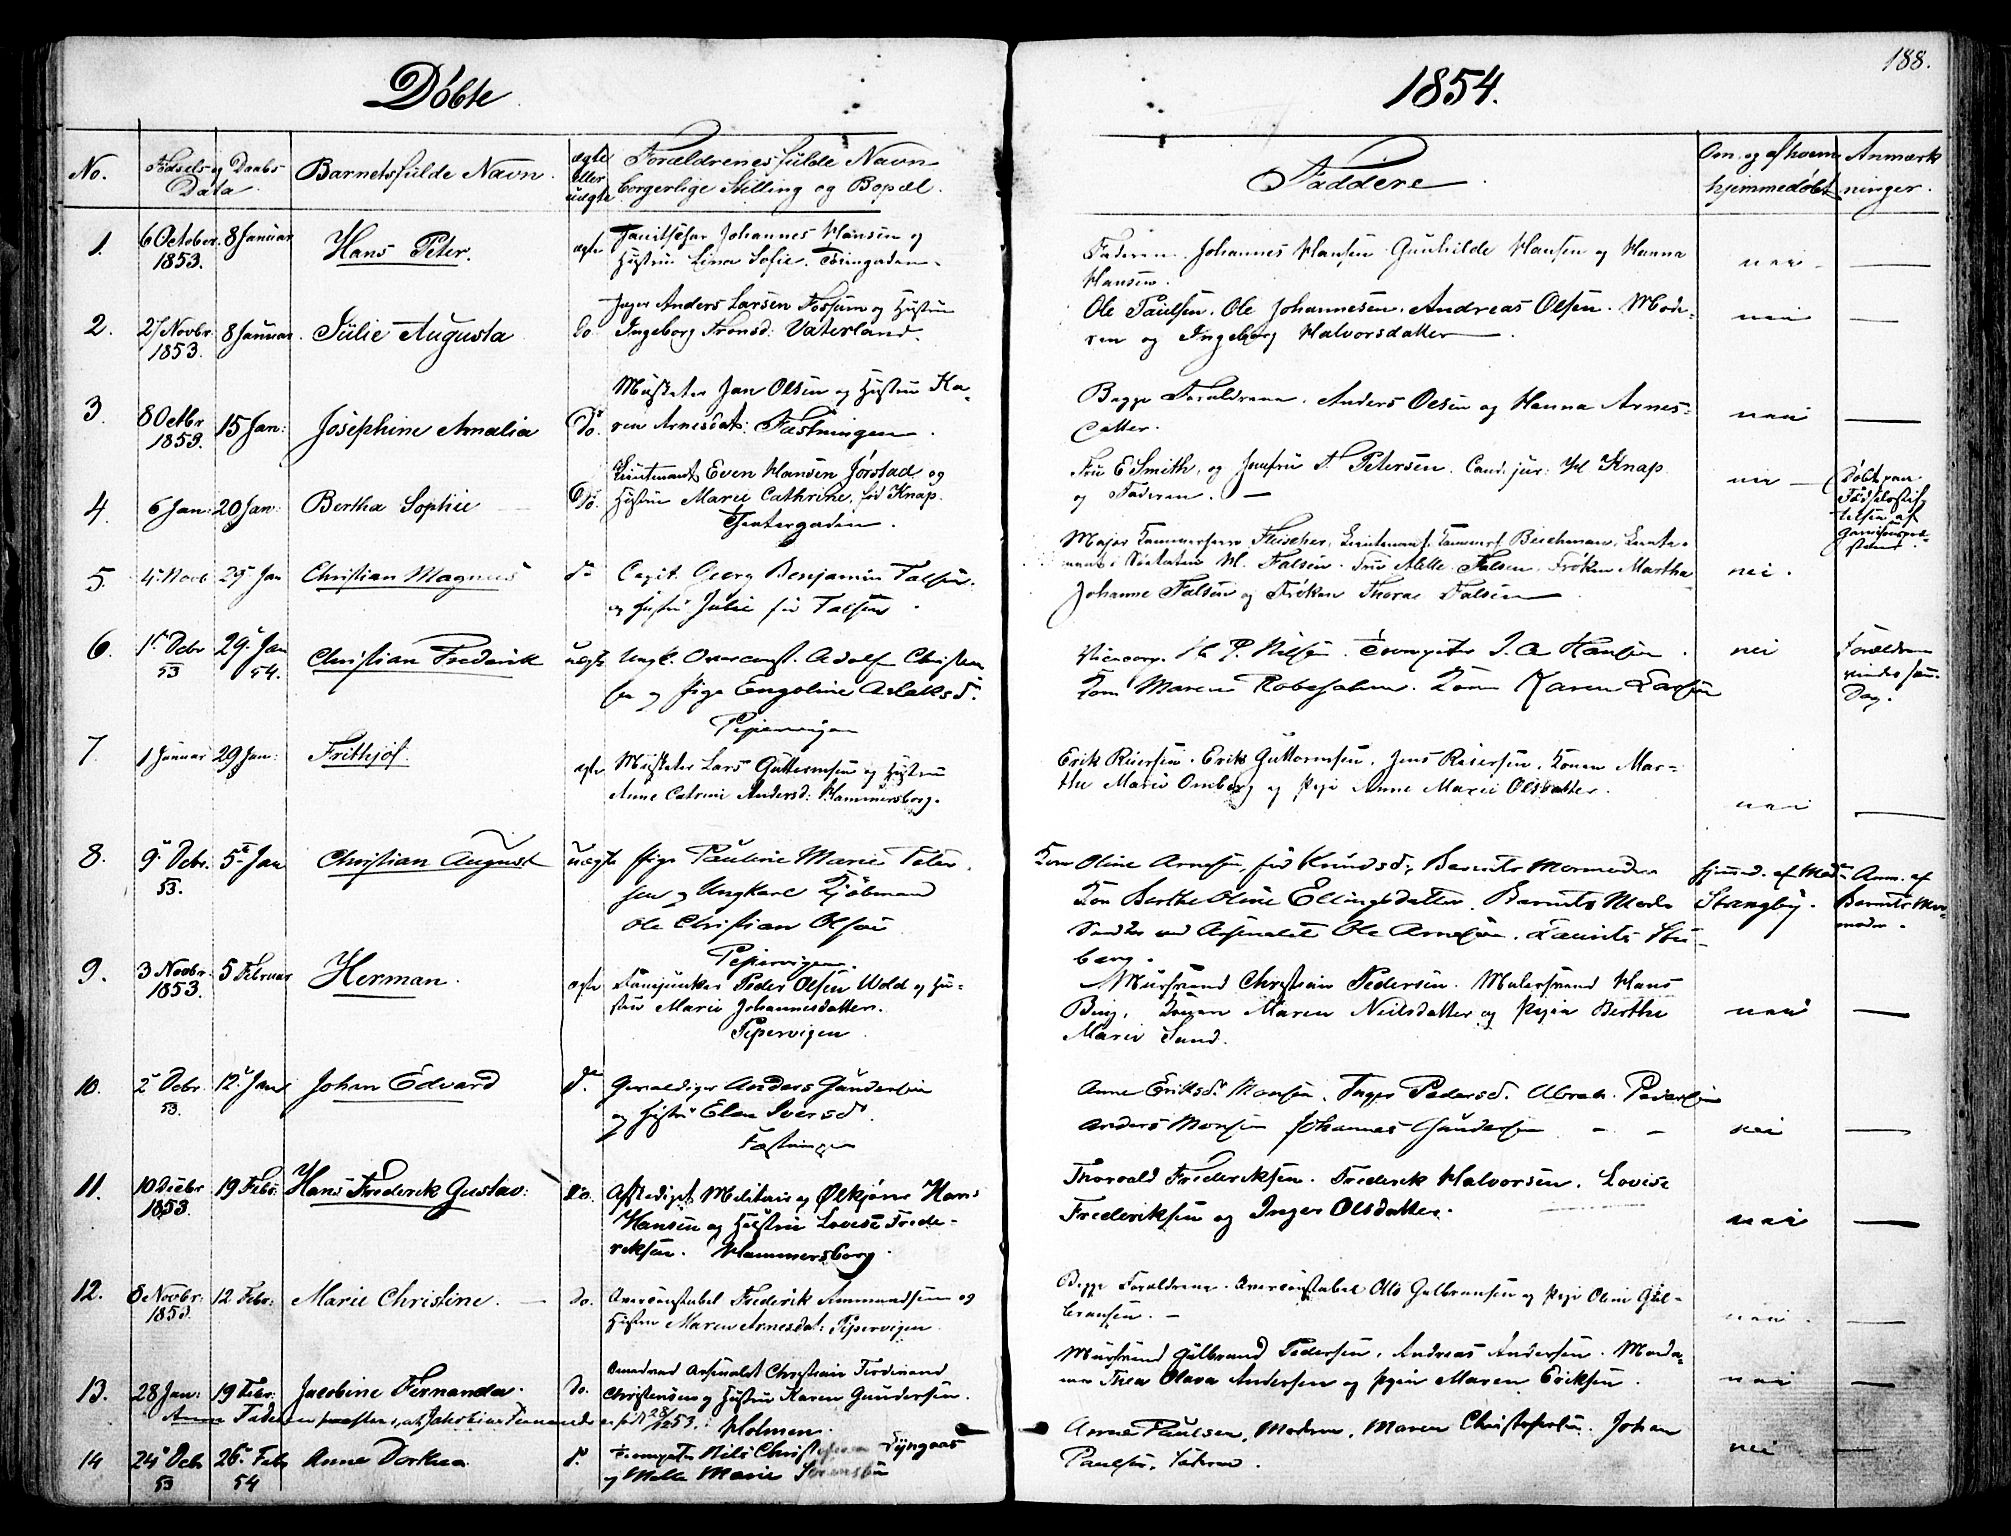 188.
Døbte 1854.
No. Fødsels og Daabs Data. Barnets fulde Navn. ægte eller uægte Forældrenes fulde Navn borgerlige Stilling og Bopæl. Faddere. Om og af hvem hjemmedøbt Anmærkninger.
1. 6 October 1853. 8 Januar Hans Peter. ægte Johannes Hansen og
Hustru Lina Sofie.
Faderen. Johannes Hansen Gunhilde Hansen og Hanna
Hansen. nei —
2. 27 Novbr 1853. 8 Januar Julie Augusta Do Anders Larsen Fossum og Hustru
Ingeborg Tronsd: Vaterland.
Ole Paulsen. Ole Johannesen. Andreas Olsen. Mode-
ren og Ingeborg Halvorsdatter. nei —
3. 8 Octbr 1853. 15 Jan: Josephine Amalia Do. Musketer Jan Olsen og Hustru Ka-
ren Arnesdat: Fæstningen.
Begge Forældrene. Anders Olsen og Hanna Arnes-
datter. nei —
4. 6 Jan: 20 Jan: Bertha Sophie — Do. Lieutenant Even Hansen Jørstad og
Hustru Marie Cathrine, fød Knap.
Theatergaden.
Fru E Smith, og Jomfru T. Petersen. Cand. jur: H Knap
og Faderen. — nei — Døbt paa
Fødselsstif-
telsen af
Garnisonspre-
sten.
5. 4 Novb 29 Jan Christian Magnus do Capit. Georg Benjamin Falsen.
og Hustru Julie fød Falsen.
Major Kammerherre Fleischer, Lieutenant Beichman, Leute-
nant i Søetaten M. Falsen. Fru Melle Falsen. Frøken Martha
Johanne Falsen og Frøken Thora Falsen nei.
6. 1 Debr 53 29 Jan 54. Christian Frederik uægte Ungk. Overconst. Adolf Christen
sen og Pige Engoline Aslaksd.
Pipervigen
Vicecorp. H. P. Nilsen. Trompeter J. A. Hansen.
Kone Maren. Kone Karen Larsen nei Forældrene
viedes samme
Dag.
7. 1 Januar 29 Jan: Frithjof. ægte Musketer Lars Guttormsen og Hustru
Anne Catrine Andersd: Hammersborg.
Erik Reiersen. Erik Guttormsen. Jens Reiersen. Konen Mar-
the Marie Omberg og Pige Anne Marie Olsdatter. nei —
8. 9 Debr. 53. 5 Jan Christian August uægte Pige Pauline Marie Peter
sen og Ungkarl Kjøbmand
Ole Christian Olsen
Pipervigen.
Kone Oline Arnesen, fød Knudsd., Barnets Mormoder
Kone Berthe Oline Ellingsdatter. Barnets Moder
ved Arsenalet Ole Arnesen. Laurits
berg. hjemmed. af Mad. Strangby. Anm. af
Barnets Mor-
moder.
9. 3 Novbr. 1853. 5 Februar Herman. ægte Peder Olsen Wold og Hu-
stru Marie Johannesdatter.
Pipervigen
Mursvend Christian Pedersen. Malersvend Hans
Bing, Konen Maren Neilsdatter og Pigen Berthe
Marie Sund. nei —
10. 2 Debr. 53. 12 Jan Johan Edvard do Gevaldiger Anders Gundersen
og Hustru Elen Iversd.
Fæstningen
Anne Eriksd. Monsen. Inger Pedersd. Abrah. Pedersen
Anders Monsen Johannes Gundersen — — nei —
11. 10 Decbr 1853. 19 Febr. Hans Frederik Gustav: Do. Afskediget Militair og Ølkjører Hans
Hansen og Hustru Lovise Frede-
riksen. Hammersborg.
Thorvald Frederiksen. Frederik Halvorsen. Lovise
Frederiksen og Inger Olsdatter. nei —
12. 8 Novbr: 1853. 12 Febr: Marie Christine. — Do. Overconstabel Frederik Ammundsen og
Hustru Maren Arnesdat: Pipervigen
Begge Forældrene. Overconstabel Otto Gulbransen og Pige Oline Gul-
bransen. — nei. —
13. 28 Jan: 19 Febr. Jacobine Fernanda. Do. Arsenalet Christian Ferdinand
Christensen og Hustru Karen Gundersen.
Holmen.
Mursvend Gulbrand Pedersen, Andreas Andersen. Mada-
me Thea Olava Andersen og Pigen Maren Eriksen. nei —
14 24 Debr 53 26 Feb 54 Anne Dorthea do Trompeter Nils Christophersen Lyngaas
og Melle Marie Sørensen
Anne Paulsen, Moderen, Maren Christophersen. Johan
Paulsen, Faderen. nei —